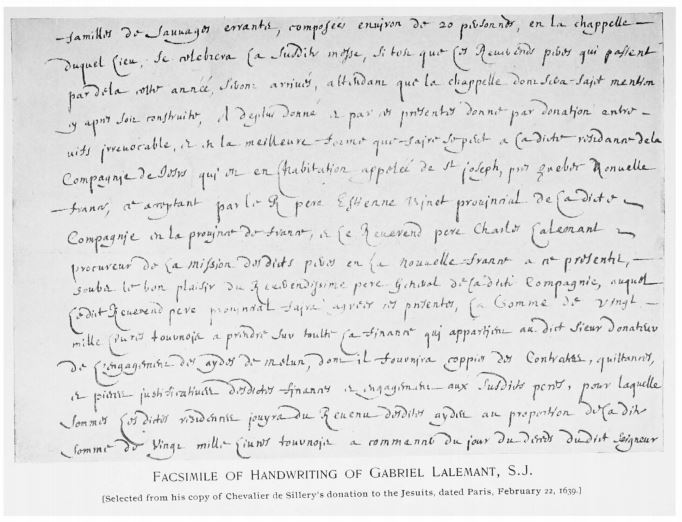 familles de sauvages errants, composees environ de 20 personnes, en la chappelle
duquel lieu, se celebrera la susdite messe, si tost que les Reverends peres qui passent
par dela ceste année, seront arrivés, attendant que la chappelle dont sera faict mention
cy apres soit construite, Il deplus donné et par ces presentes donne par donation entre
vifs irrevocable, et en la meilleure forme que faire se peut a la dicte residance de la
Compagnie de Jesus qui est en l'habitation appelée de St joseph, pres Quebec Nouvelle
france, ce acceptant par le R pere Estienne Binet provincial de la dicte
Compagnie en la province de france, et le Reverend pere Charles Lalemant
procureur de la mission desdicts peres en la nouvelle france a ce presents,
soubs le bon plaisir du Reverendissime pere General de ladicte Compagnie, auquel
ledit Reverend pere provincial faira agréer ces presentes, la somme de vingt
mille livres tournois a prendre sur toutte la finance qui appartient au dict sieur Donateur
de l'engagement des aydes de melun, dont il fournira coppies des Contratcs, quittances,
et pieces justificatives desdictes finances et engagement aux susdicts peres, pour laquelle
somme lesdictes residences jouyra du Revenu desdites aydes au proportion de ladite
somme de vingt mille livres tournois a commencer du jour du deceds dudict seigneur
FACSIMILE OF HANDWRITING OF GABRIEL LALEMANT, S.J.
[Selected from his copy of Chevalier de Sillery's donation to the Jesuits, dated Paris, February 22, 1639.]